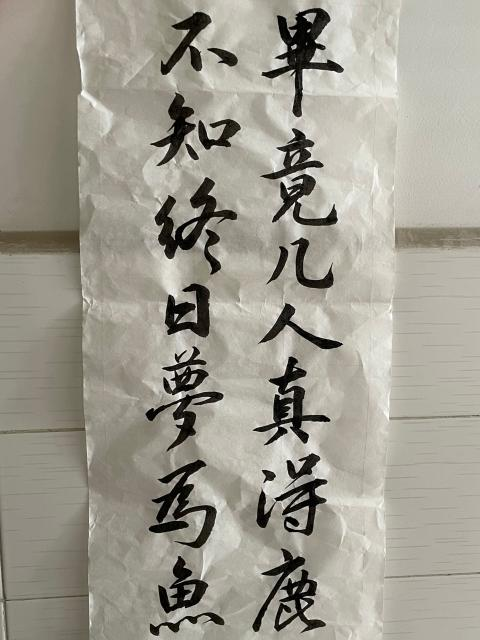 畢竟几人真得鹿
不知終日夢為魚